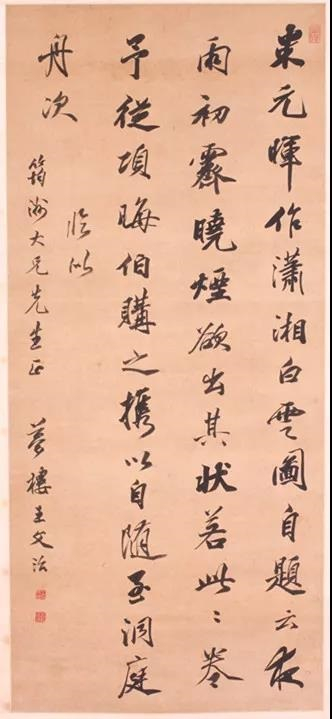 米元暉作瀟湘白雲圖自題云夜
雨初霽曉煙欲出其狀若此此卷
予從項晦伯購之攜以自隨至洞庭
舟次
臨似
筠洲大兄先生正
夢樓王文治